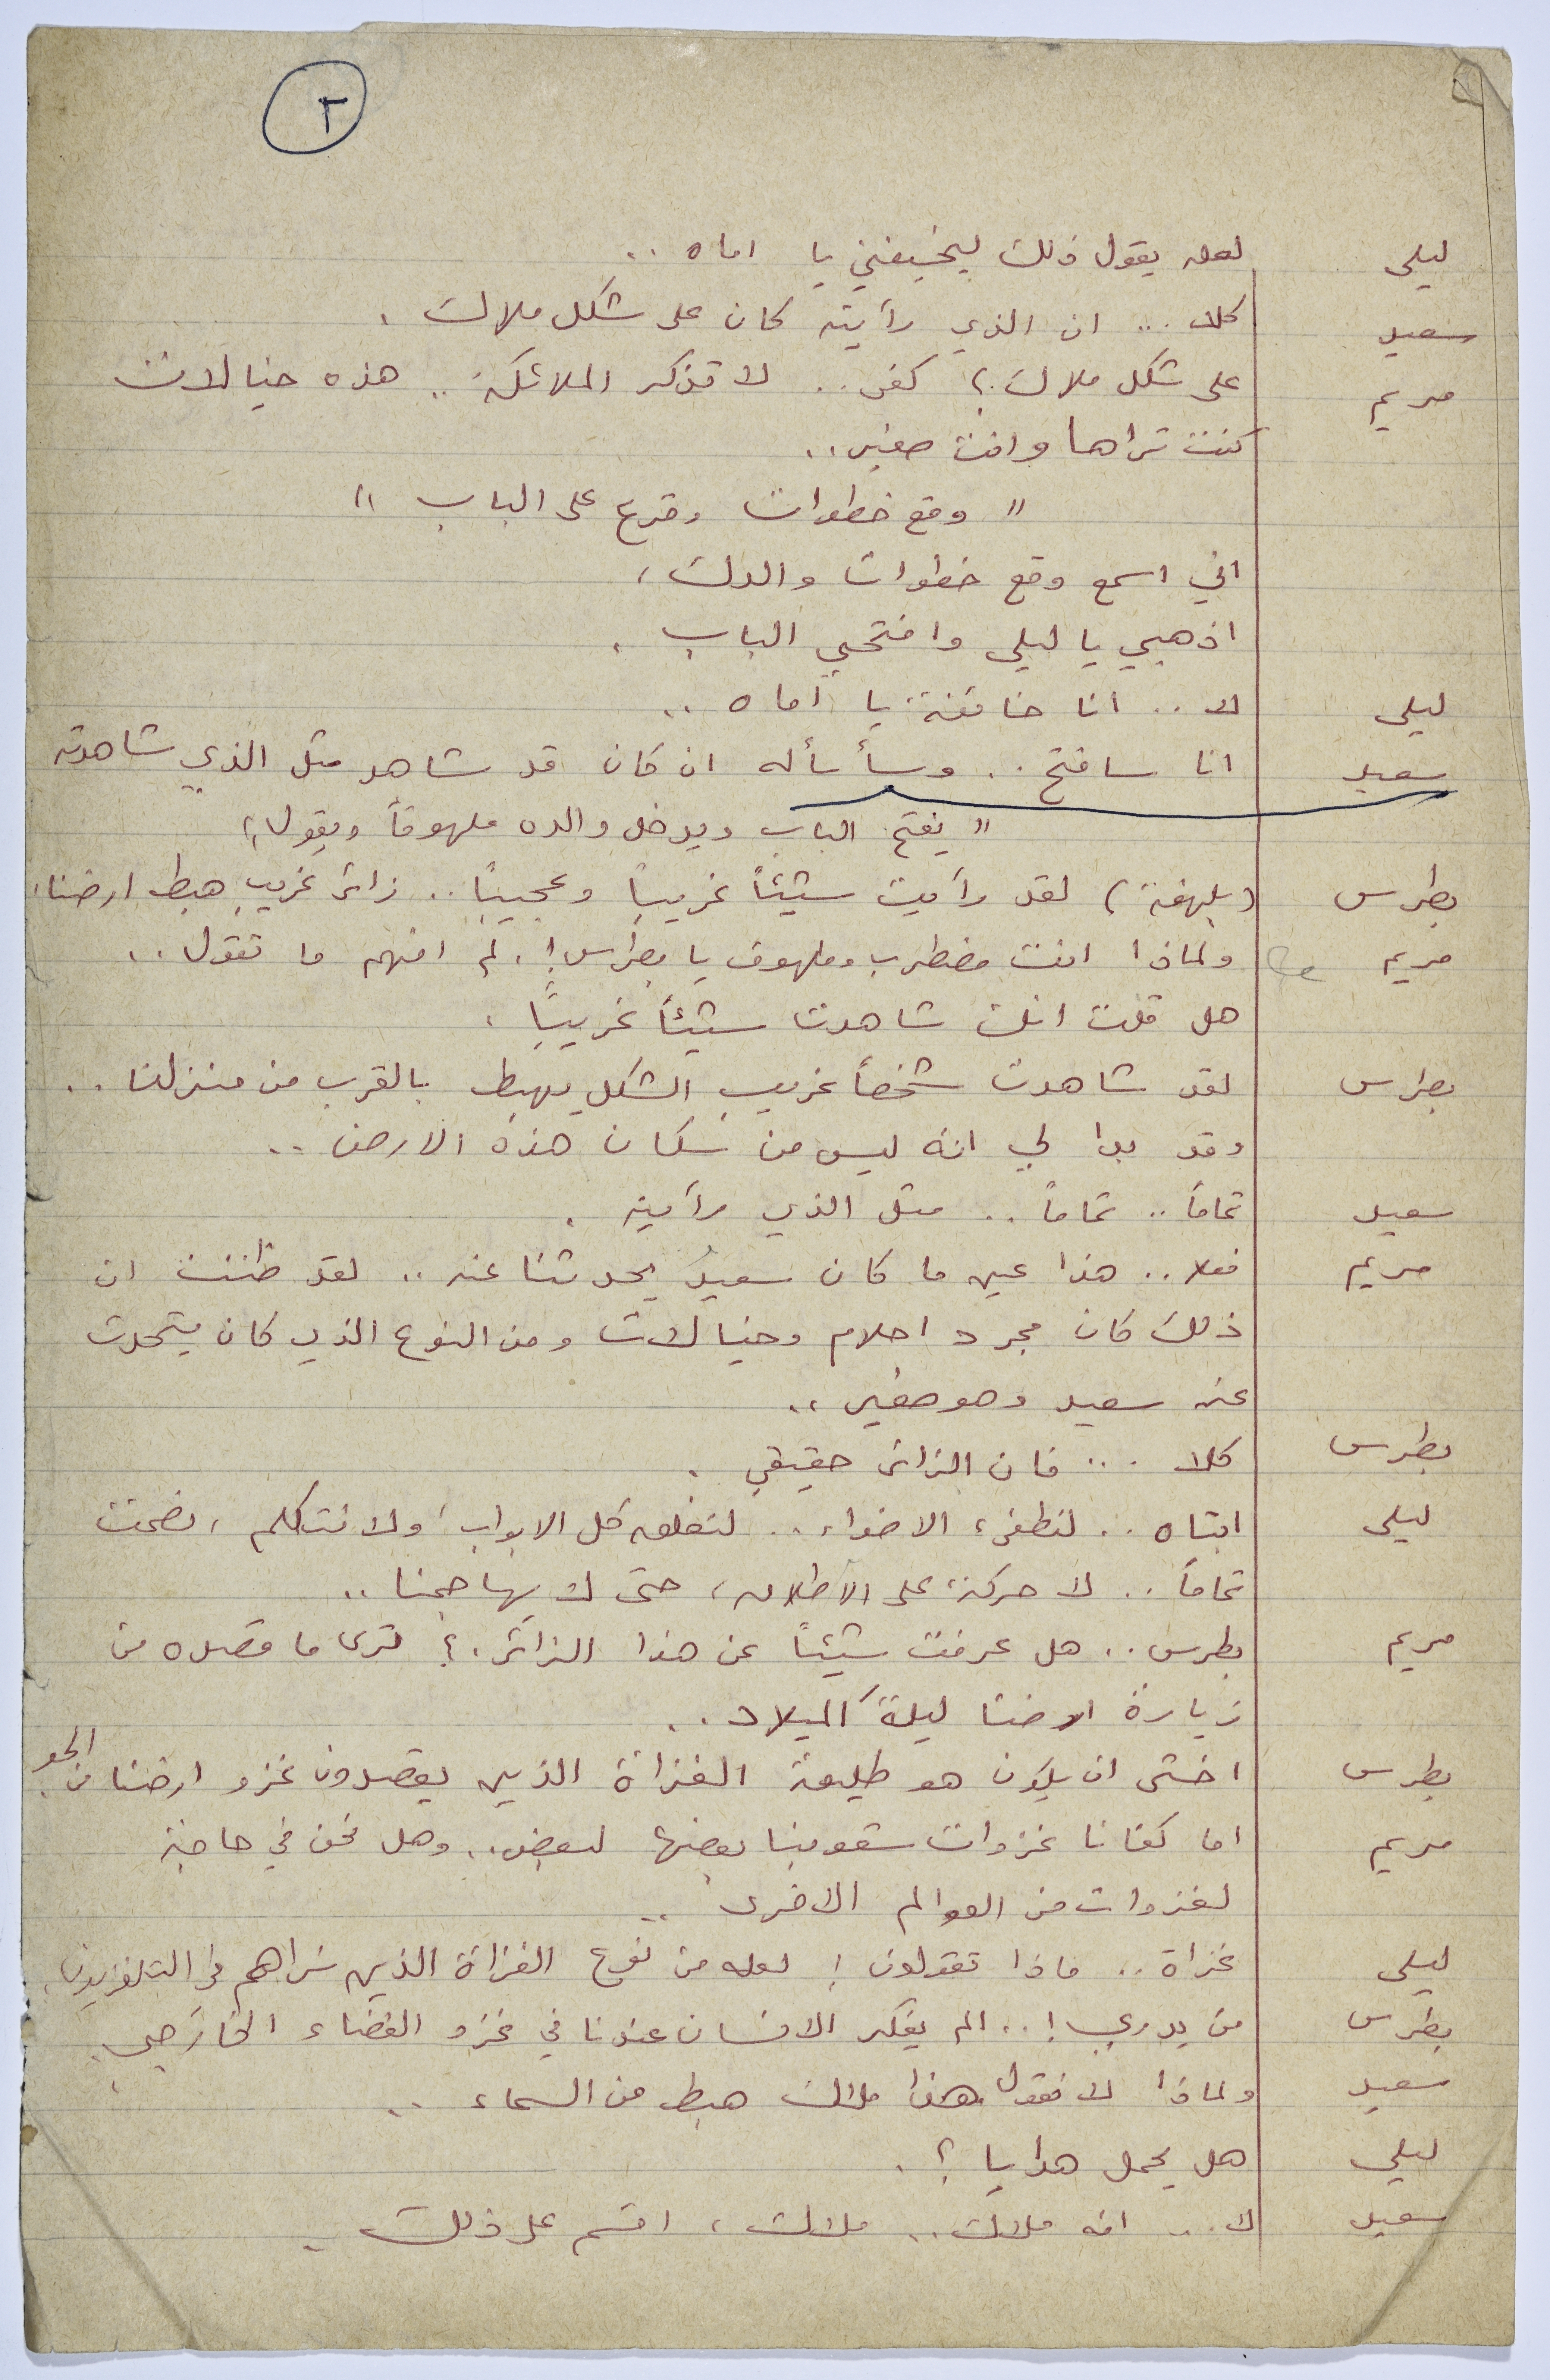 ٢
ليلى لعله يقول ذلك ليخيفني يا اماه ..
سعيد كلا ... ان الذي رأيته كان على شكل ملاك .
مريم على شكل ملاك ؟ كفى .. لا تذكر الملائكة .. هذه خيالات
كنت تراها وانت صغير ..
" وقع خطوات وقرع على الباب "
اني اسمع وقع خطوات والدك ،
اذهبي يا ليلى وافتحي الباب .
ليلى لا .. انا خائفة يا اماه ..
سعيد انا سافتح .. وسأسأله ان كان قد شاهد مثل الذي شاهدته
" يفتح الباب ويدخل والده ملهوفاً ويقول "
بطرس (بلهفة) لقد رأيت شيئاً غريباً وعجيباً .. زائر غريب هبط ارضنا .
مريم ولماذا انت مضطرب وملهوف يا بطرس ! . لم افهم ما تقول ..
هل قلت انك شاهدت شيئاً غريباً .
بطرس لقد شاهدت شخصاً غريب الشكل يهبط بالقرب من منزلنا ..
وقد بدا لي انه ليس من سكان هذه الارض ..
سعيد تماماً .. تماماً .. مثل الذي رأيته .
مريم فعلا .. هذا عين ما كان سعيد يحدثنا عنه .. لقد ظننت ان
ذلك كان مجرد احلام وخيالات ومن النوع الذي كان يتحدث
عنه سعيد وهو صغير ..
بطرس كلا ... فان الزائر حقيقي .
ليلى ابتاه .. لنطفىء الاضواء .. لنغلق كل الابواب ، ولا نتكلم ، نصمت
تماماً .. لا حركة على الاطلاق ، حتى لا يهاجمنا ..
مريم بطرس .. هل عرفت شيئاً عن هذا الزائر . ؟ ترى ما قصده من
زيارة ارضنا ليلة الميلاد ..
بطرس اخشى ان يكون هو طليعة الغزاة الذين يقصدون غزو ارضنا من الجو .
مريم اما كفانا غزوات شعوبنا بعضها لبعض .. وهل نحن في حاجة
لغزوات من العوالم الاخرى ..
ليلى غزاة .. ماذا تقولون ! لعله من نوع الغزاة الذين نراهم في التلفزيون .
بطرس من يدري ! .. الم يفكر الانسان عندنا في غزو الفضاء الخارجي .
سعيد ولماذا لا نقول هذا ملاك هبط من السماء ..
ليلى هل يحمل هدايا ؟ .
سعيد لا .. انه ملاك .. ملاك ، اقسم على ذلك .